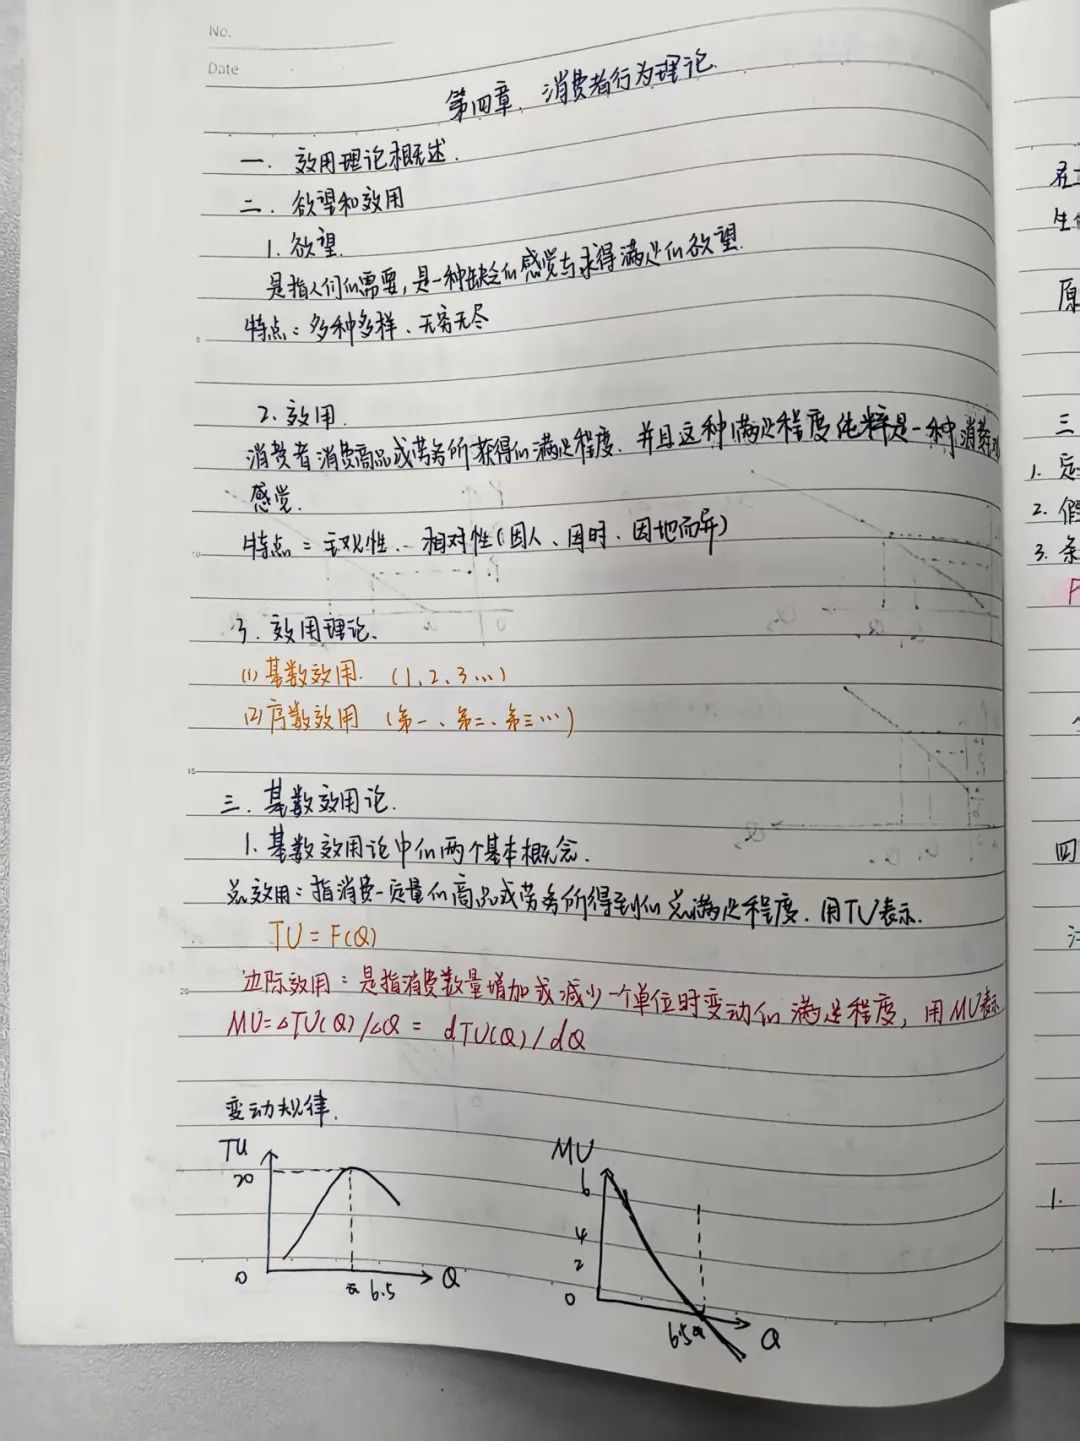 No.
Date
第四章、消费者行为理论.
一. 效用理论概述.
二. 欲望和效用
1. 欲望.
是指人们的需要,是一种缺乏的感觉与求得满足的欲望.
特点:多种多样、无穷无尽
2. 效用.
消费者消费商品或劳务所获得的满足程度.并且这种满足程度纯粹是一种消费
感觉.
特点:主观性、相对性(因人、因时、因地而异)
3. 效用理论.
(1) 基数效用. (1、2、3…)
(2) 序数效用 (第一、第二、第三…)
三. 基数效用论.
1. 基数效用论中的两个基本概念.
总效用:指消费一定量的商品或劳务所得到的总满足程度.用TU表示.
TU = F(Q)
边际效用:是指消费数量增加或减少一个单位时变动的满足程度,用MU表示
MU=△TU(Q)/△Q = dTU(Q)/dQ
变动规律.
TU
20
0
6.5
Q
MU
6
4
2
0
6.5
Q
生
原
三
1.
2. 假
3. 条
四
1.